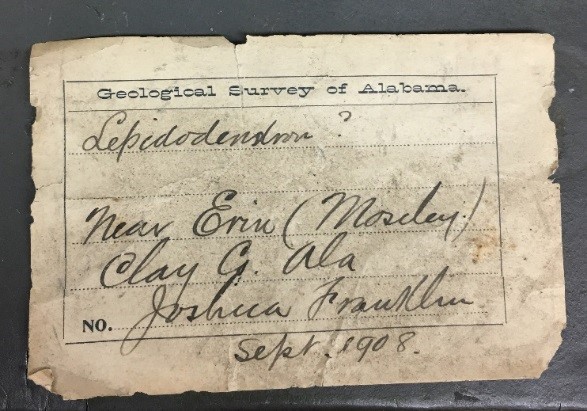 Geological Survey of Alabama.
Lepidodendron ?
Near Erin (Moseley)
Clay Co. Ala
NO. Joshua Franklin
Sept. 1908.